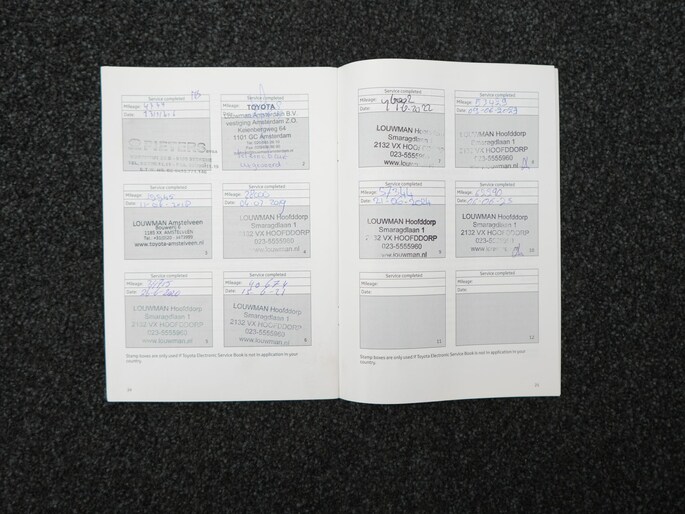 Service completed
Mileage:
Date:
Service completed
Mileage:
TOYOTA
Amsterdam B.V.
vestiging Amsterdam Z.O.
Keienbergweg 64
1101 GC Amsterdam
2
Service completed
Mileage:
Date:
LOUWMAN Amstelveen
Bouwerij 6
1185 XX AMSTELVEEN
www.toyota-amstelveen.nl
Service completed
Mileage: 22000
Date: 04.07.2019
LOUWMAN Hoofddorp
Smaragdlaan 1
2132 VX HOOFDDORP
023-5555960
www.louwman.nl
4
Service completed
Mileage:
Date:
LOUWMAN Hoofddorp
Smaragdlaan 1
2132 VX HOOFDDORP
023-5555960
www.louwman.nl
Service completed
Mileage: 40.674
Date: 15-6-21
LOUWMAN Hoofddorp
Smaragdlaan 1
2132 VX HOOFDDORP
023-5555960
www.louwman.nl
Stamp boxes are only used if Toyota Electronic Service Book is not in application in your
country.
24
Service completed
Mileage:
Date:
LOUWMAN Hoofddorp
Smaragdlaan 1
2132 VX HOOFDDORP
023-5555960
www.louwman.nl
7
Service completed
Mileage: 53429
Date:
LOUWMAN Hoofddorp
Smaragdlaan 1
2132 VX HOOFDDORP
023-5555960
Service completed
Mileage: 57344
Date: 21-06-2024
LOUWMAN Hoofddorp
Smaragdlaan 1
2132 VX HOOFDDORP
023-5555960
www.louwman.nl
9
Service completed
Mileage: 62590
Date:
LOUWMAN Hoofddorp
Smaragdlaan 1
2132 VX HOOFDDORP
023-5555960
www.louwman.nl
10
Service completed
Mileage:
Date:
11
Service completed
Mileage:
Date:
12
Stamp boxes are only used if Toyota Electronic Service Book is not in application in your
country.
25